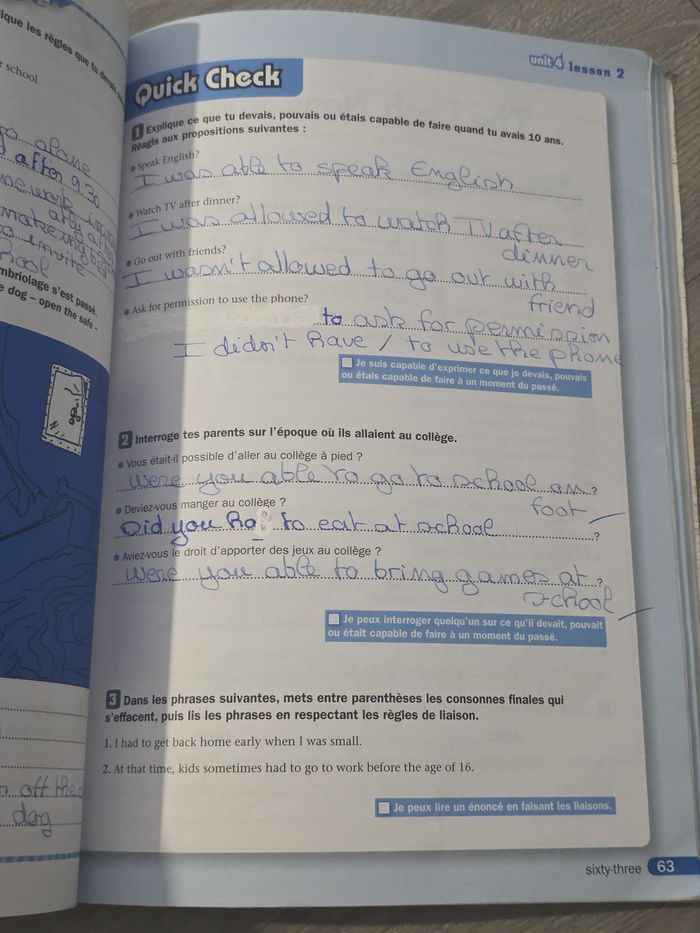 ique les règles que tu devais
school
unit 4 lesson 2
Quick Check
1 Explique ce que tu devais, pouvais ou étais capable de faire quand tu avais 10 ans.
Réagis aux propositions suivantes :
• Speak English?
I was able to speak English
• Watch TV after dinner?
I was allowed to watch TV after
dinner
• Go out with friends?
I wasn't allowed to go out with
friend
• Ask for permission to use the phone?
to ask for permission
I didn't have / to use the phone
Je suis capable d'exprimer ce que je devais, pouvais
ou étais capable de faire à un moment du passé.
2 Interroge tes parents sur l'époque où ils allaient au collège.
• Vous était-il possible d'aller au collège à pied ?
were you able to go to school on ?
foot
• Deviez-vous manger au collège ?
Did you to eat at school ?
• Aviez-vous le droit d'apporter des jeux au collège ?
were you able to bring games at ?
school
Je peux interroger quelqu'un sur ce qu'il devait, pouvait
ou était capable de faire à un moment du passé.
3 Dans les phrases suivantes, mets entre parenthèses les consonnes finales qui
s'effacent, puis lis les phrases en respectant les règles de liaison.
1. I had to get back home early when I was small.
2. At that time, kids sometimes had to go to work before the age of 16.
Je peux lire un énoncé en faisant les liaisons.
sixty-three 63
alone
after 9.30
invite
mbriolage s'est passé.
e dog – open the safe –
off the
dog